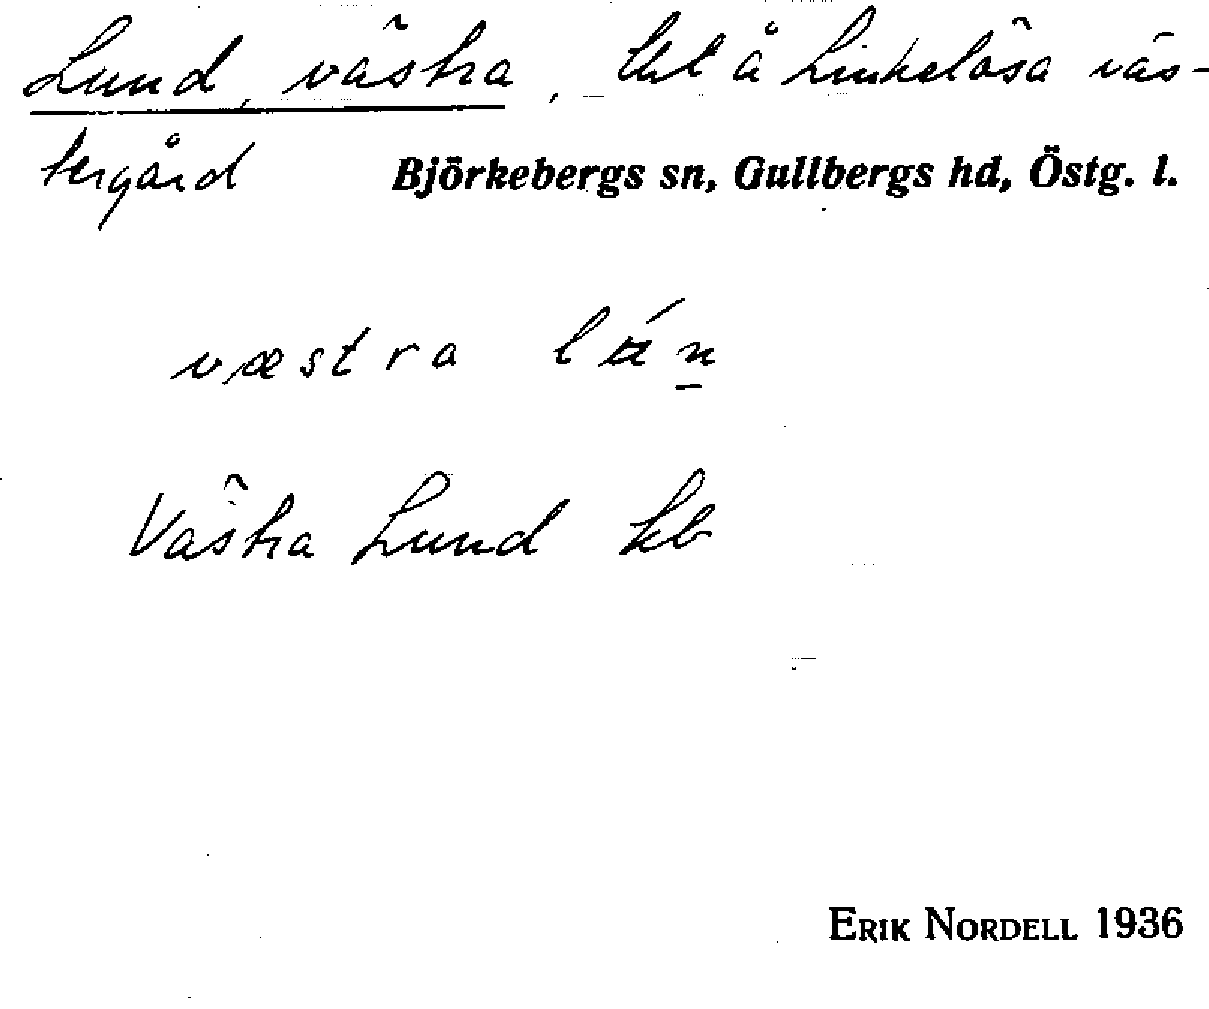 Lund, västra, tbl å Linkelösa väs-
tergård Björkebergs sn, Gullbergs hd, Östg. l.
væstra
Västra Lund kb
ERIK NORDELL 1936